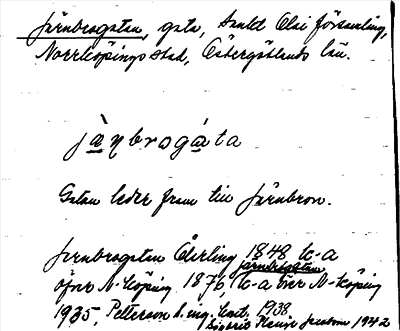 Järnbrogatan, gata, Sankt Olai församling,
Norrköpings stad, Östergötlands län.
jà̲ṇbrogá̲ta
Gatan leder fram till Järnbron.
Jernbrogatan Öberling 1848 t-a
Järnbrogatan
öfver N-köping 1876, t-a över N-köping
1935, Petterson 1938
1942